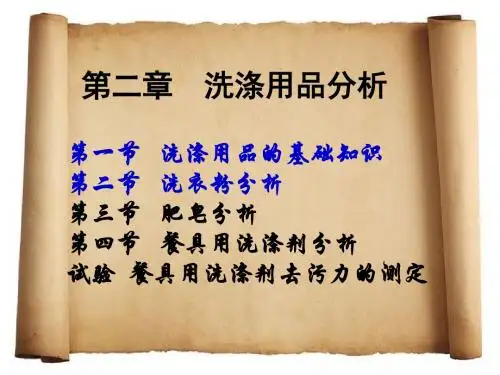 第二章 洗涤用品分析
第一节 洗涤用品的基础知识
第二节 洗衣粉分析
第三节 肥皂分析
第四节 餐具用洗涤剂分析
试验 餐具用洗涤剂去污力的测定